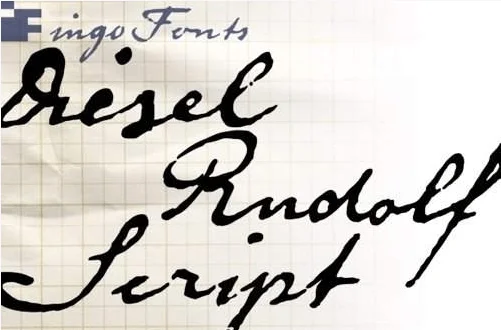 FingoFonts
Diesel
Rudolf
Script